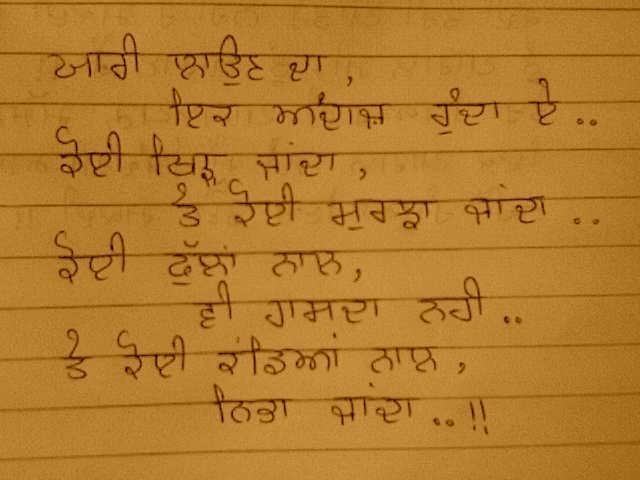 ਯਾਰੀ ਲਾਉਣ ਦਾ,
ਇਕ ਅੰਦਾਜ਼ ਹੁੰਦਾ ਏ..
ਕੋਈ ਖਿੜ ਜਾਂਦਾ,
ਤੇ ਕੋਈ ਮੁਰਝਾ ਜਾਂਦਾ..
ਕੋਈ ਫੁੱਲਾਂ ਨਾਲ,
ਵੀ ਹਸਦਾ ਨਹੀ..
ਤੇ ਕੋਈ ਕੰਡਿਆਂ ਨਾਲ,
ਨਿਭਾ ਜਾਂਦਾ..!!